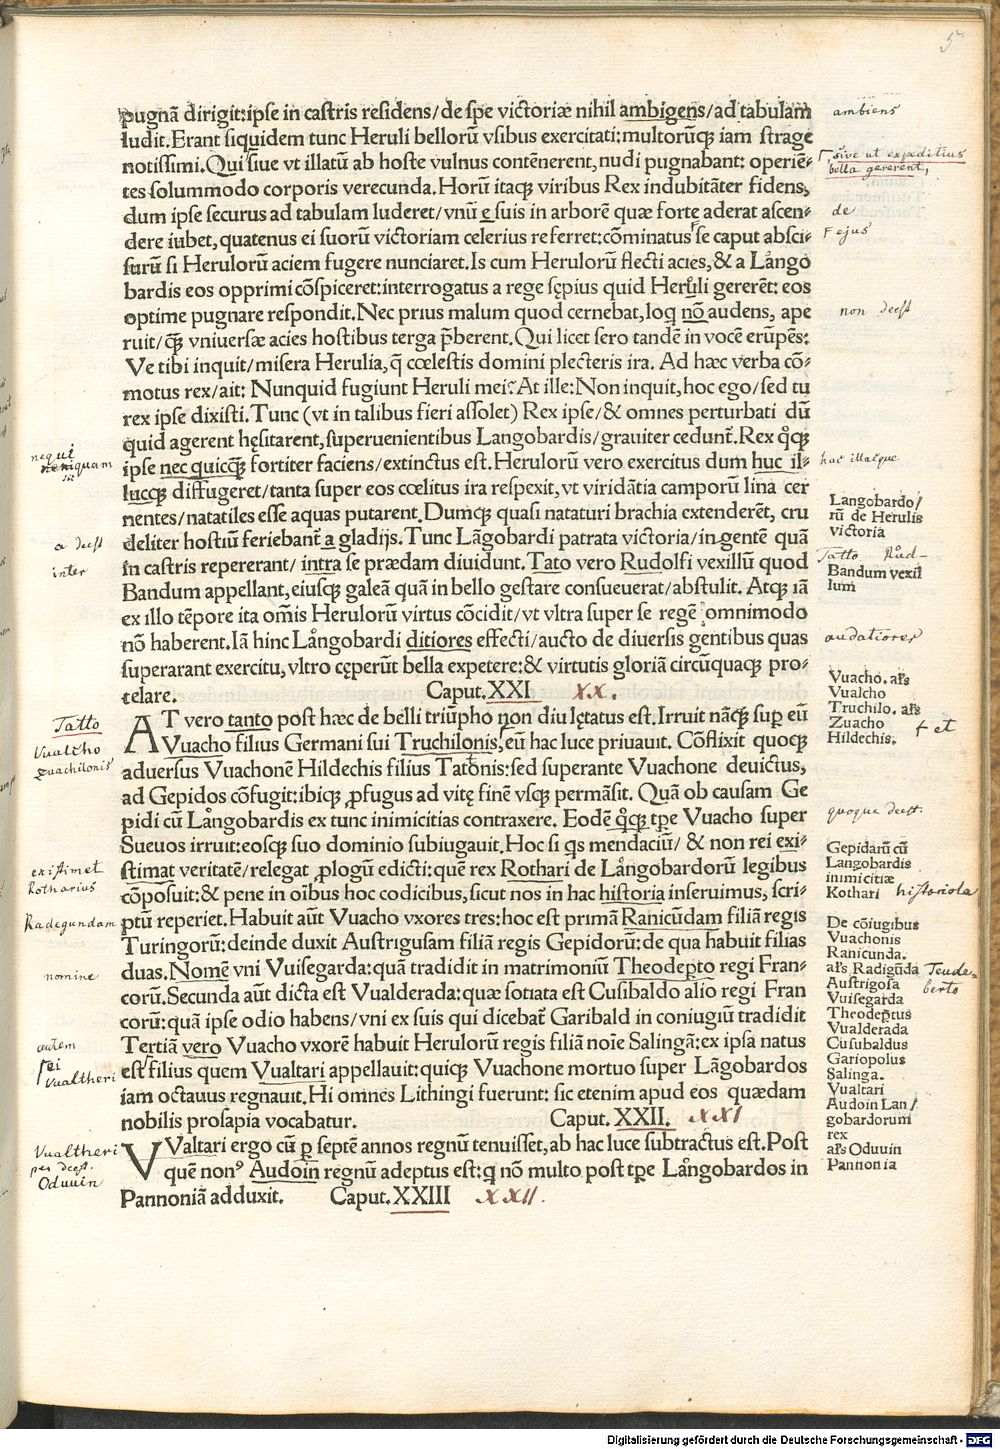 5
pugnã dirigit:ipse in castris residens/de spe victoriæ nihil ambigens/ad tabulam
ludit.Erant siquidem tunc Heruli bellorũ vsibus exercitati:multorũqꝫ iam strage
notissimi.Qui siue vt illatũ ab hoste vulnus contẽnerent,nudi pugnabant: operiẽ⸗
tes solummodo corporis verecunda.Horũ itaqꝫ viribus Rex indubitãter fidens,
dum ipse securus ad tabulam luderet/vnũ e suis in arborẽ quæ forte aderat ascen⸗
dere iubet,quatenus ei suorũ victoriam celerius referret:cõminatus se caput absci⸗
surũ si Herulorũ aciem fugere nunciaret.Is cum Herulorũ flecti acies,& a Lãngo
bardis eos opprimi cõspiceret:interrogatus a rege sępius quid Heruli gererẽt: eos
optime pugnare respondit.Nec prius malum quod cernebat,loq nõ audens, ape
ruit/qꝫ vniuersæ acies hostibus terga p̃berent.Qui licet sero tandẽ in vocẽ erũpẽs:
Ve tibi inquit/misera Herulia,q̃ cœlestis domini plecteris ira. Ad hæc verba cõ⸗
motus rex/ait: Nunquid fugiunt Heruli mei?At ille:Non inquit,hoc ego/sed tu
rex ipse dixisti.Tunc (vt in talibus fieri assolet) Rex ipse/& omnes perturbati dũ
quid agerent hęsitarent,superuenientibus Langobardis/grauiter cedunt̃.Rex q̊qꝫ
ipse nec quicqꝫ fortiter faciens/extinctus est.Herulorũ vero exercitus dum huc il⸗
lucqꝫ diffugeret/tanta super eos cœlitus ira respexit,vt viridãtia camporũ lina cer
nentes/natatiles esse aquas putarent.Dumqꝫ quasi nataturi brachia extenderẽt, cru
deliter hostiũ feriebant̃ a gladijs.Tunc Lãgobardi patrata victoria/in gentẽ quã
in castris repererant/intra se prædam diuidunt.Tato vero Rudolfi vexillũ quod
Bandum appellant,eiusqꝫ galeã quã in bello gestare consueuerat/abstulit. Atqꝫ iã
ex illo tẽpore ita om̃is Herulorũ virtus cõcidit/vt vltra super se regẽ omnimodo
nõ haberent.Iã hinc Lãngobardi ditiores effecti/aucto de diuersis gentibus quas
superarant exercitu,vltro cęperũt bella expetere:& virtutis gloriã circũquaqꝫ pro⸗
telare. Caput.XXI XX.
AT vero tanto post hæc de belli triũpho non diu lętatus est.Irruit nãqꝫ sup eũ
Vuacho filius Germani sui Truchilonis,eũ hac luce priuauit. Cõflixit quoqꝫ
aduersus Vuachonẽ Hildechis filius Tatonis:sed superante Vuachone deuictus,
ad Gepidos cõfugit:ibiqꝫ ꝓfugus ad vitę finẽ vsqꝫ permãsit. Quã ob causam Ge
pidi cũ Lãngobardis ex tunc inimicitias contraxere. Eodẽ q̊qꝫ tp̃e Vuacho super
Sueuos irruit:eosqꝫ suo dominio subiugauit.Hoc si q̃s mendaciũ/ & non rei exi⸗
stimat veritatẽ/relegat ꝓlogũ edicti:quẽ rex Rothari de Lãngobardorũ legibus
cõposuit:& pene in oĩbus hoc codicibus,sicut nos in hac historia inseruimus, scri⸗
ptũ reperiet.Habuit aũt Vuacho vxores tres:hoc est primã Ranicũdam filiã regis
Turingorũ:deinde duxit Austrigusam filiã regis Gepidorũ:de qua habuit filias
duas.Nomẽ vni Vuisegarda:quã tradidit in matrimoniũ Theodepto regi Fran⸗
corũ.Secunda aũt dicta est Vualderada:quæ sotiata est Cusibaldo alio regi Fran
corũ:quã ipse odio habens/vni ex suis qui dicebat̃ Garibald in coniugiũ tradidit
Tertiã vero Vuacho vxorẽ habuit Herulorũ regis filiã noĩe Salingã:ex ipsa natus
est filius quem Vualtari appellauit:quiqꝫ Vuachone mortuo super Lãgobardos
iam octauus regnauit.Hi omnes Lithingi fuerunt: sic etenim apud eos quædam
nobilis prosapia vocabatur. Caput.XXII. XXI
VValtari ergo cũ ꝑ septẽ annos regnũ tenuisset,ab hac luce subtractus est.Post
quẽ nonꝰ Audoin regnũ adeptus est:q nõ multo post tp̃e Lãngobardos in
Pannoniã adduxit. Caput.XXIII XXII.
nequi
sic
a deest
inter
Tatto
Vualcho
Zuachilonis
existimet
Rotharius
Radegundam
nomine
autem
ei
Vualtheri
Vualtheri
per deest.
Oduuin
ambiens
sive ut expeditius
bella gererent,
de
ejus
non deest
hac illacque
Langobardo/
rũ de Herulis
victoria
Tatto
Bandum vexil
lum
audatiores
Vuacho. al's
Vualcho
Truchilo. al's
Zuacho
Hildechis.
et
quoque deest.
Gepidarũ cũ
Langobardis
inimicitiæ
Kothari
historiola
De cõiugibus
Vuachonis
Ranicunda.
al's Radigũda
Teude-
berto
Austrigosa
Vuisegarda
Theodep̃tus
Vualderada
Cusubaldus
Gariopolus
Salinga.
Vualtari
Audoin Lan/
gobardorum
rex
al's Oduuin
Pannonia
Digitalisierung gefördert durch die Deutsche Forschungsgemeinschaft - DFG